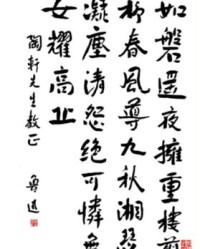 如磐遥夜擁重樓翦
柳春風導九秋湘瑟
凝塵清怨絕可憐無
女耀高丘
陶軒先生教正
魯迅